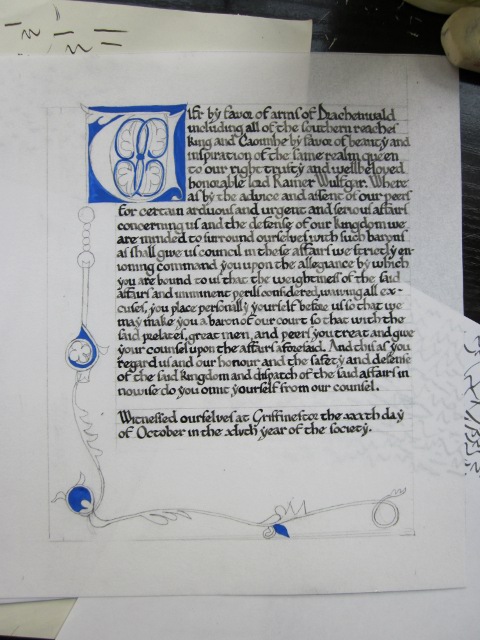 by favor of arms of Drachenwald
including all of the southern reaches
king and Caoimhe by favor of beauty and
inspiration of the same realm queen
to our right trusty and wellbeloved
honorable lord Rainer Wulfgar. Where
as by the advice and assent of our peers
for certain arduous and urgent and serious affairs
concerning us and the defense of our kingdom we
are minded to surround ourselves with such barons
as shall give us council in these affairs we strictly en-
joining command you upon the allegiance by which
you are bound to us that the weightiness of the said
affairs and imminent perils considered, waiving all ex-
cuses, you place personally yourself before us so that we
may make you a baron of our court so that with the
said prelates, great men, and peers you treat and give
your counsel upon the affairs aforesaid. And this as you
regard us and our honour and the safety and defense
of the said kingdom and dispatch of the said affairs in
nowise do you omit yourself from our counsel.
Witnessed ourselves at Griffinestor the day
of October in the year of the society.